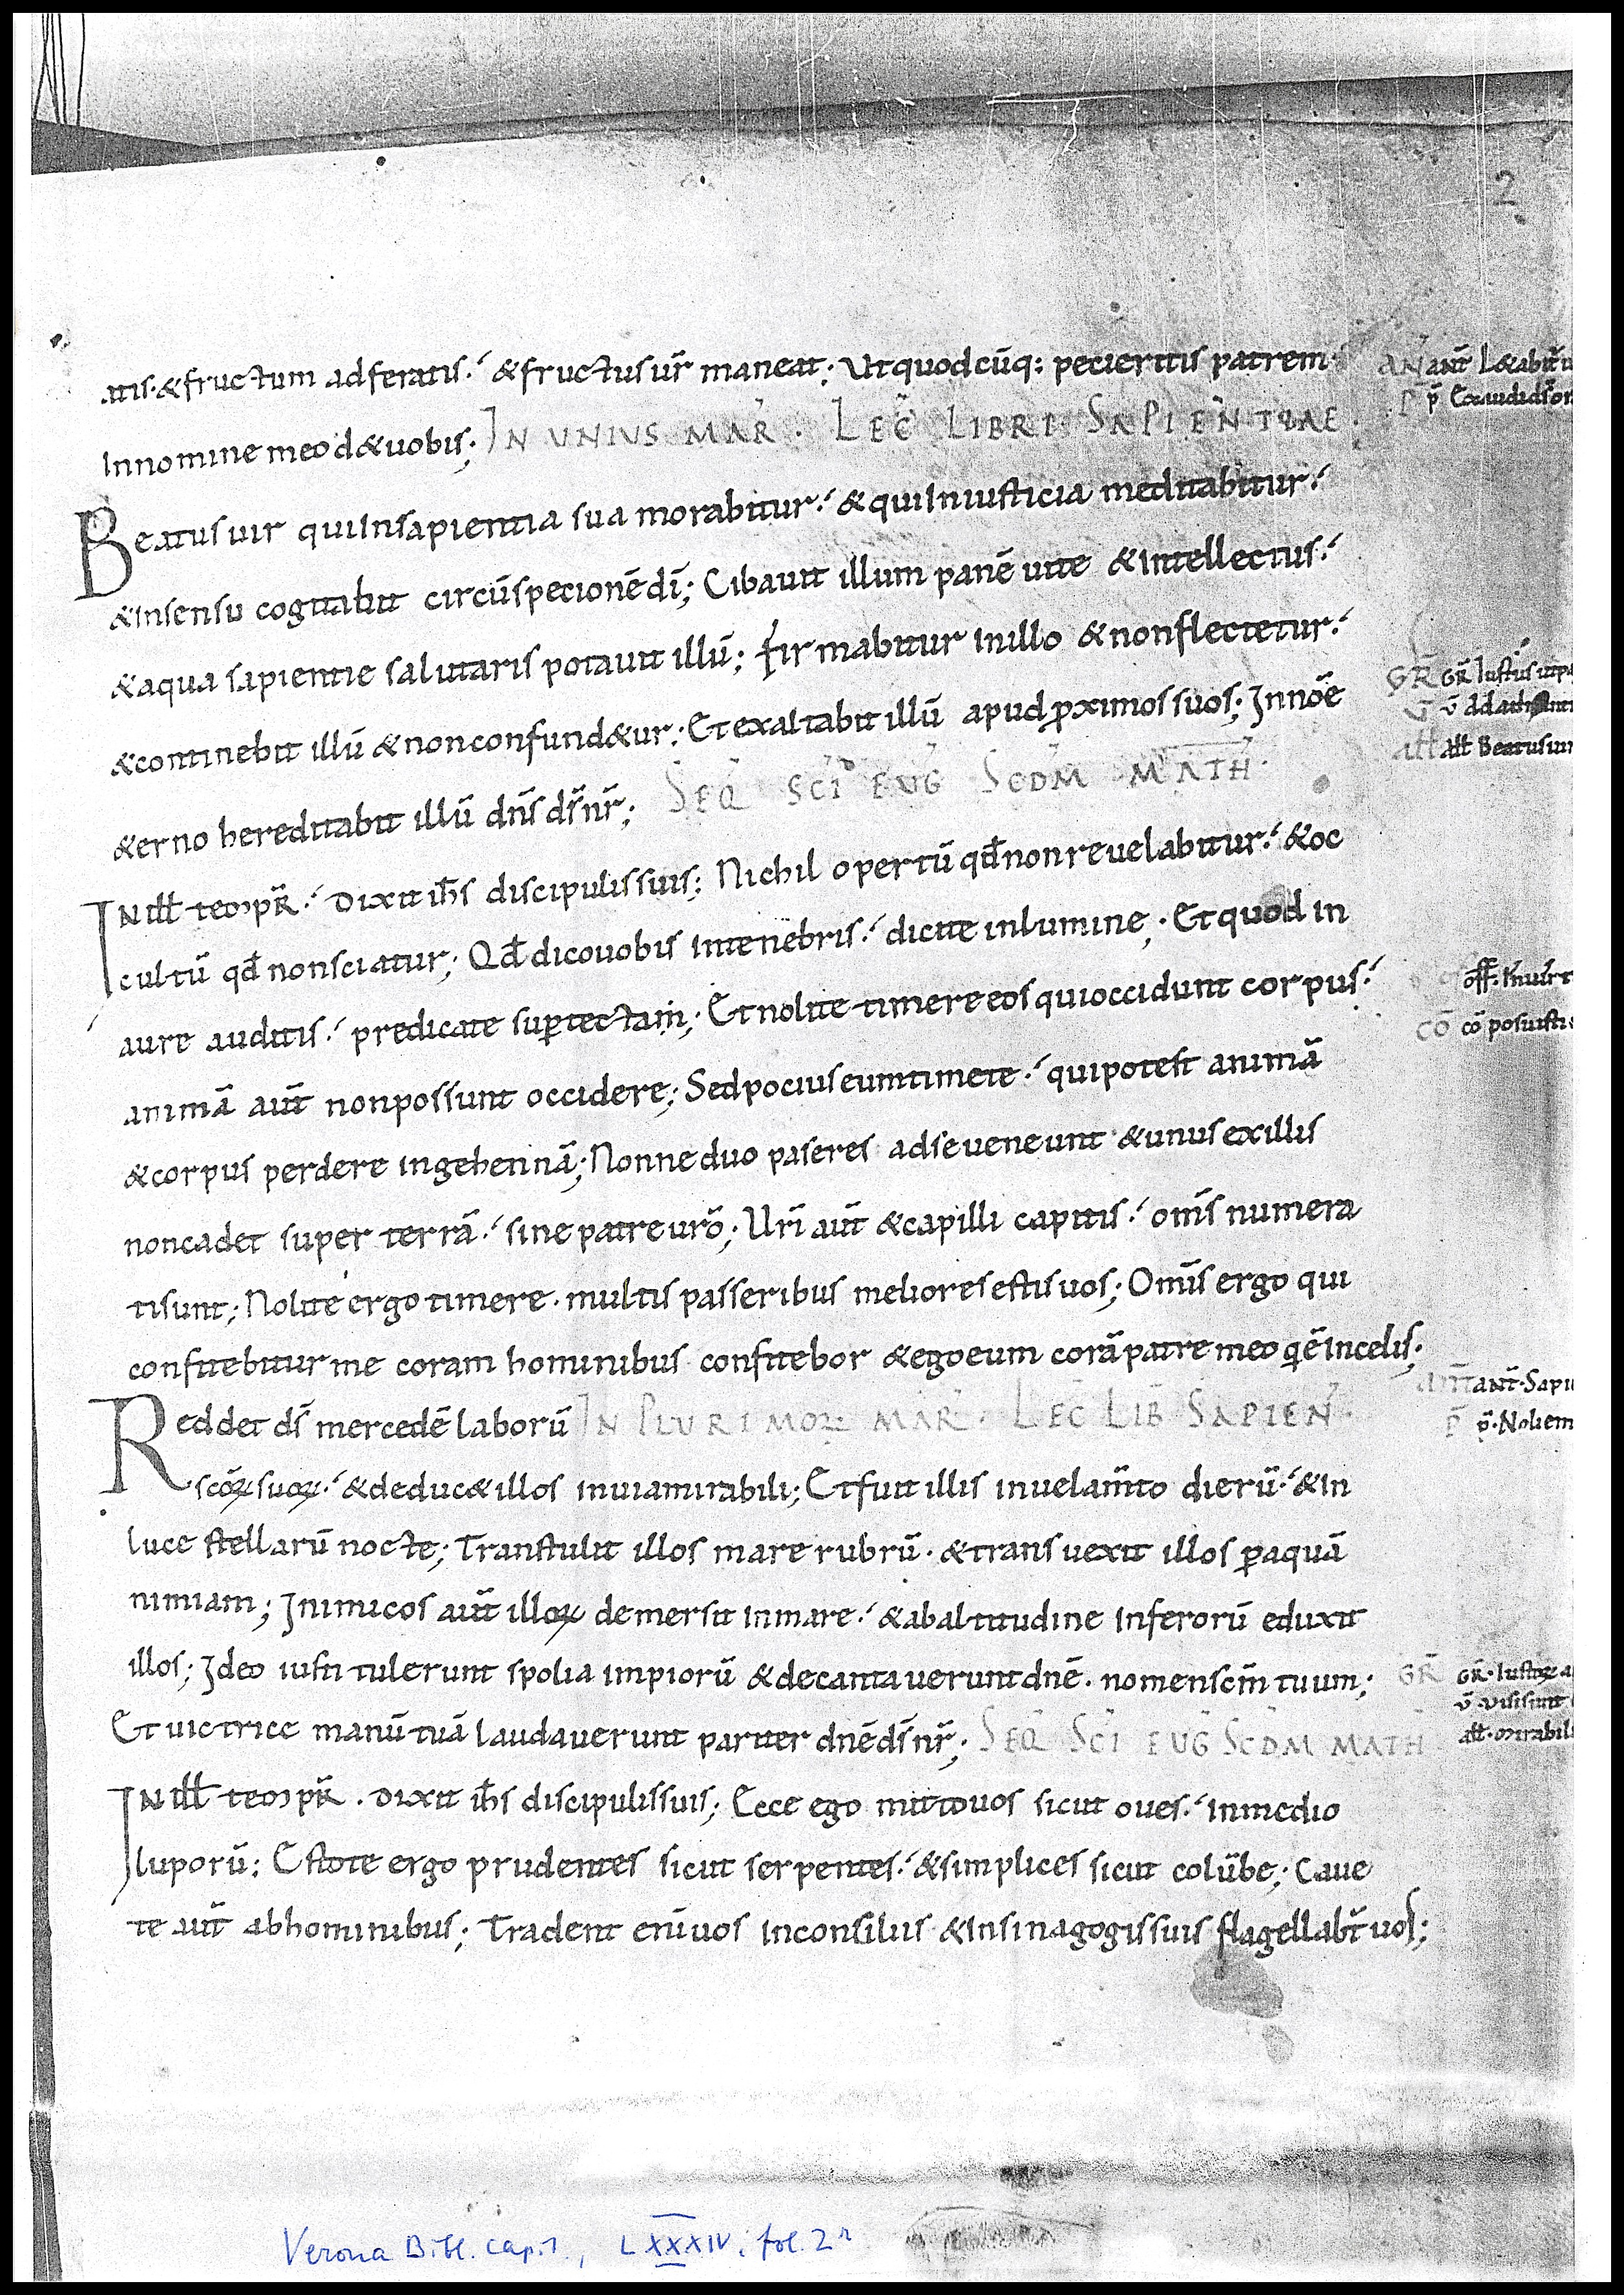 2
atis. & fructum adferatis. & fructus ur̄ maneat; Ut quodcūq: pecieritis patrem
In nomine meo d& uobis; IN UNIUS MAR̄. LEC̄ LIBRI SAPIENTIAE.
Beatus uir qui In sapientia sua morabitur. & qui In iusticia meditabitur.
& In sensu cogitabit circūspecionē dī; Cibauit illum panē uite & Intellectus.
& aqua sapientie salutaris potauit illū; firmabitur in illo & non flectetur.
& continebit illū & non confund&ur; Et exaltabit illū apud proximos suos; In nōe
&erno hereditabit illū dn̄s ds̄ nr̄; SEQ̄ SCĪ EUG̅ SCDM MATH.
IN ill̄ tempr̄. Dixit ih̄s discipulis suis; Nichil opertū qd̄ non reuelabitur. & oc
cultū qd̄ non sciatur; Qd̄ dico uobis in tenebris. dicite in lumine; Et quod in
aure auditis. predicate sup̄ tectam; Et nolite timere eos qui occidunt corpus.
animā aut̄ non possunt occidere; Sed pocius eum timete. qui potest animā
& corpus perdere in gehennā; Nonne duo paseres adse ueneunt & unus ex illis
non cadet super terrā. sine patre urō; Urī aut̄ & capilli capitis. om̄s numera
ti sunt; Nolite ergo timere. multis passeribus meliores estis uos; Omīs ergo qui
confitebitur me coram hominibus confitebor & ego eum corā patre meo q̄ ē In celis;
Reddet ds̄ mercedē laborū IN PLURIMOꝜ MAR̄. LEC̄ LIB̄ SAPIEN̄.
scōꝝ suoꝝ. & deduc& illos in uia mirabili; Et fuit illis in uelam̄to dierū. & in
luce stellarū nocte; Transtulit illos mare rubrū. & transuexit illos p̄ aquā
nimiam; Inimicos aut̄ illoꝝ demersit in mare. & ab altitudine Inferorū eduxit
illos; Ideo iusti tulerunt spolia impiorū & decantauerunt dnē. nomen scm̄ tuum;
Et uictrice manū tuā laudauerunt pariter dnē ds̄ nr̄; SEQ̄ SCĪ EUG̅ SCDM MATH
IN ill̄ tempr̄. Dixit ih̄s discipulis suis; Ecce ego mitto uos sicut oues. in medio
luporū; Estote ergo prudentes sicut serpentes. & simplices sicut colūbe; Caue
te aut̄ ab hominibus; Tradent enī uos in consiliis & In sinagogis suis flagellabt̄ uos;
ant̄ L&abit̄
p̄ Exaudi ds̄
GR̄ GR̄ Iustus ut
all̄ all̄ Beatus uir
off̄.
CŌ cō posuisti
ant̄ ant̄. Sapi
P̄ p̄. Noli em
GR̄ GR̄. Iustoꝝ
v̄. uisi sunt
all̄. mirabil
Verona Bibl. capit., LXXXIV, fol. 2r